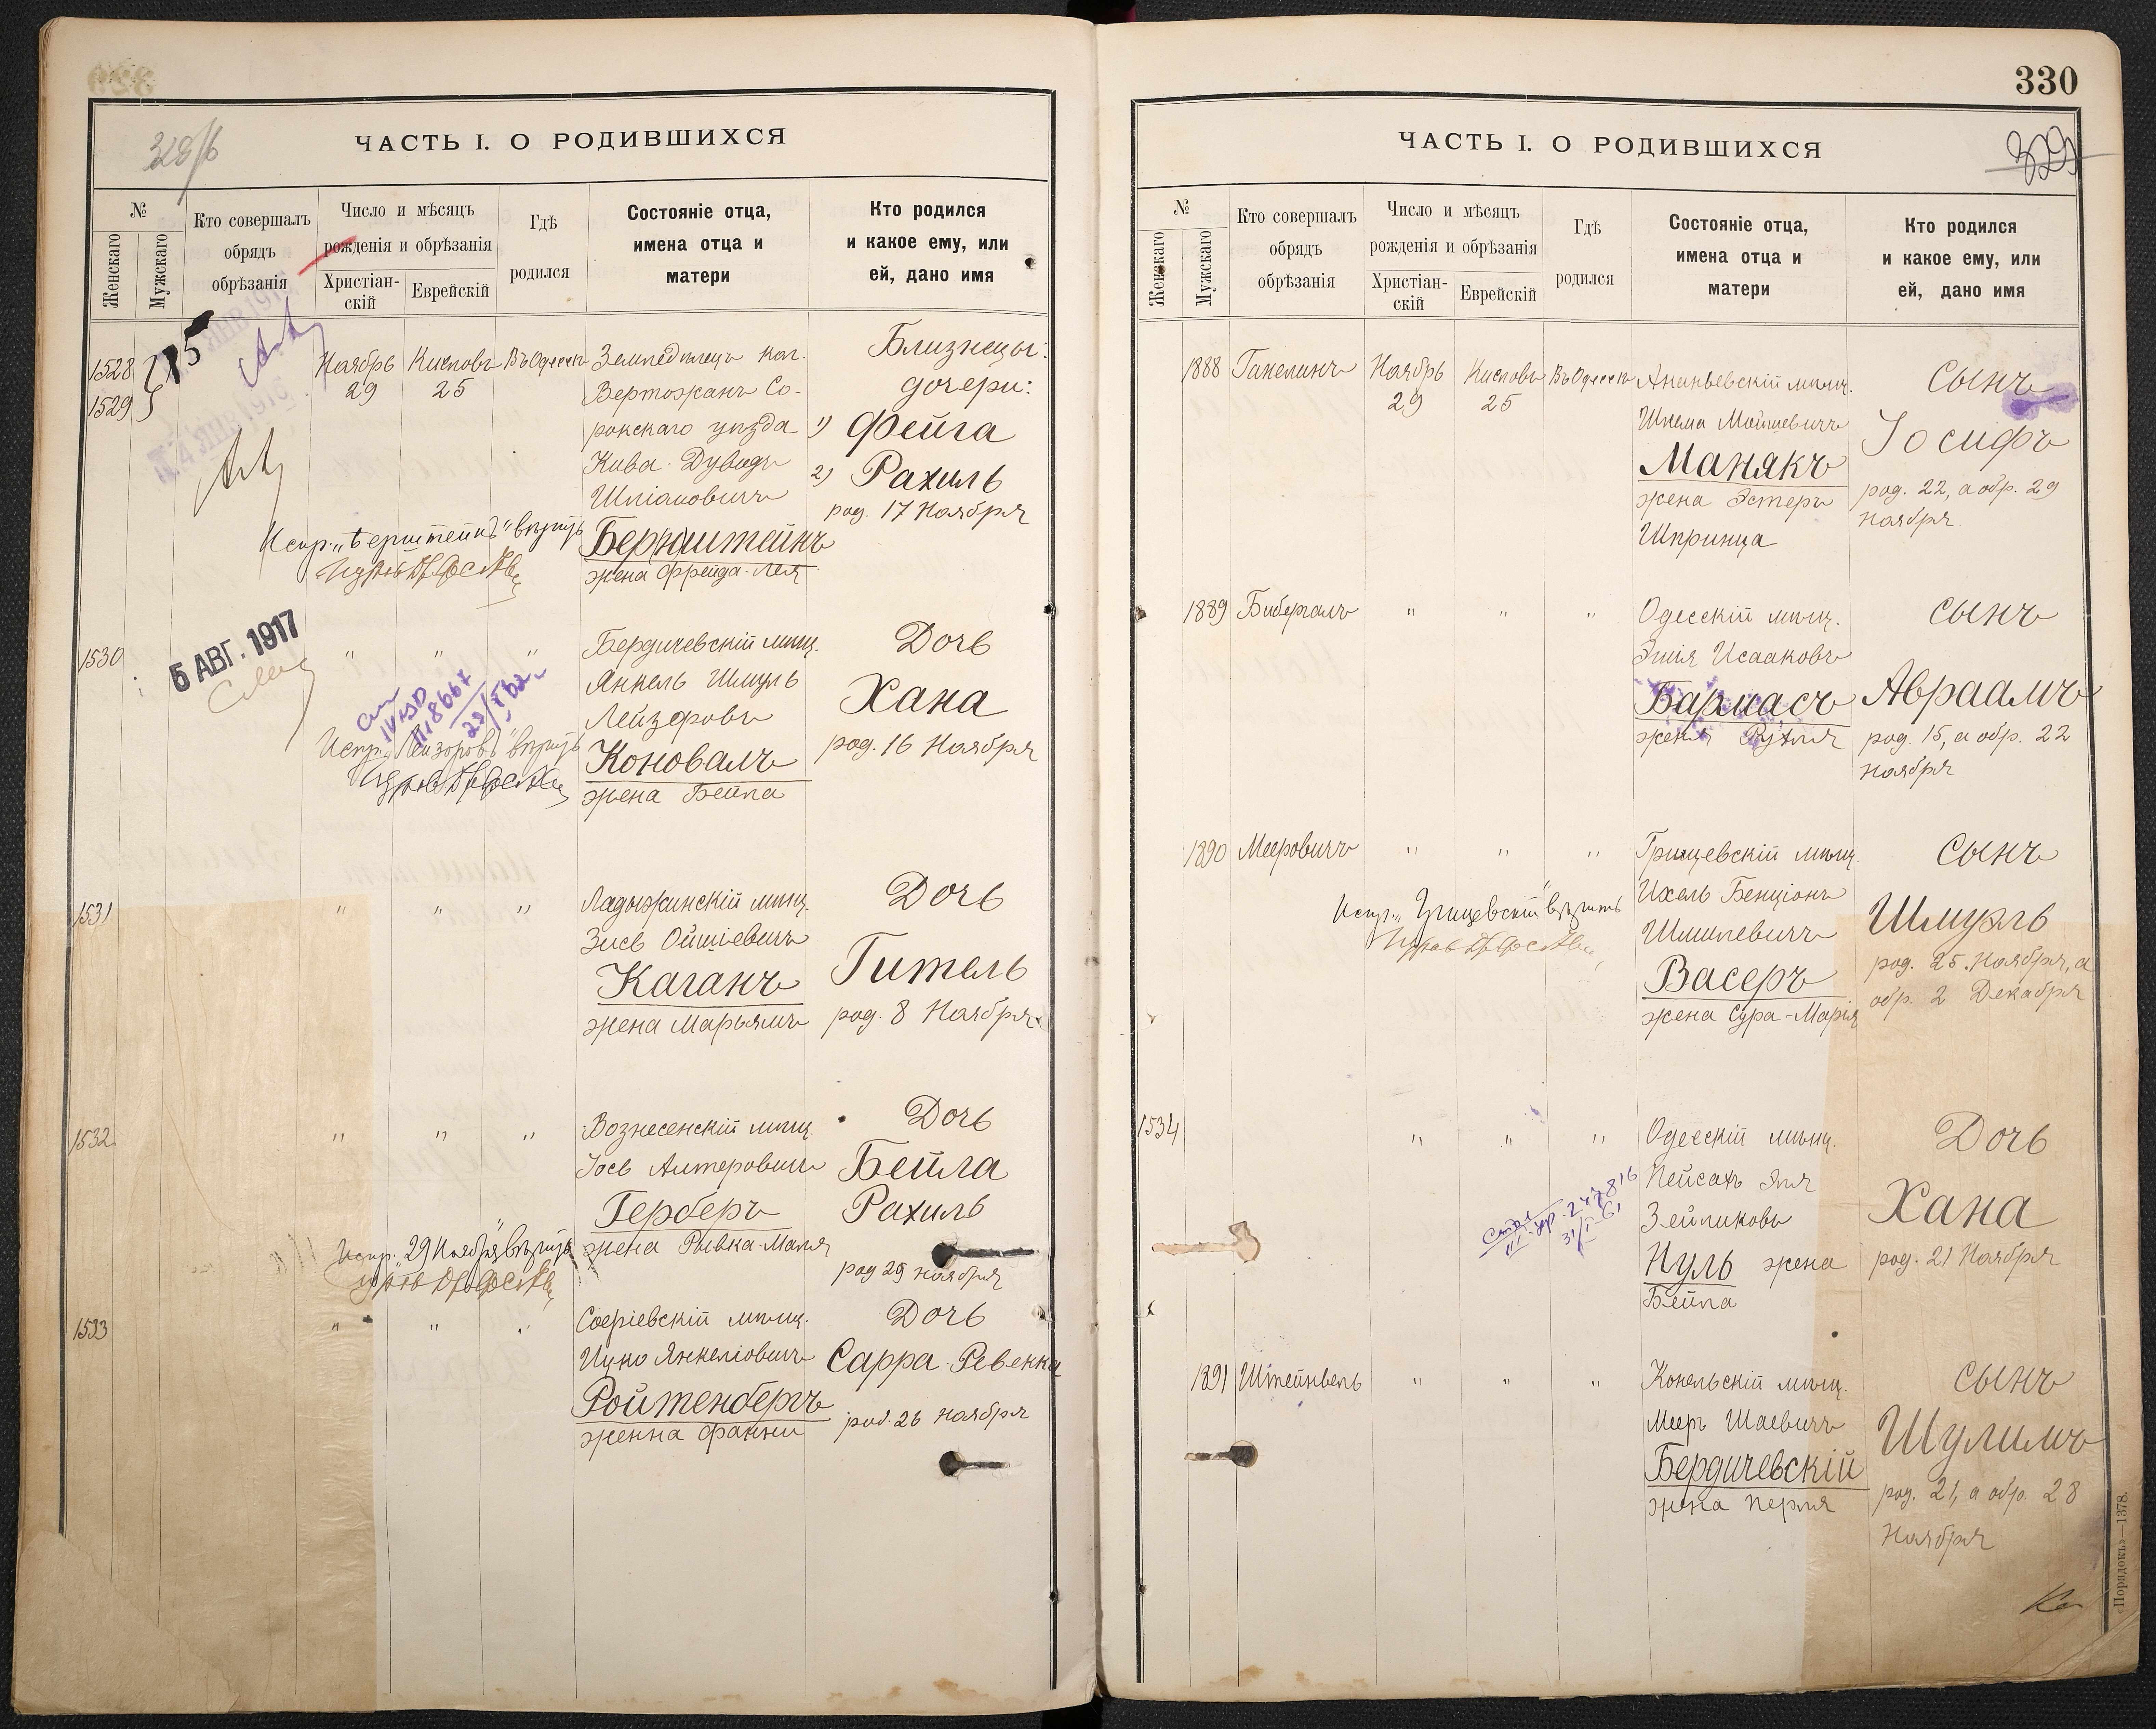 328/б
ЧАСТЬ I. О РОДИВШИХСЯ
№
Женскаго
Мужскаго
Кто совершалъ
обрядъ
обрѣзанія
Число и мѣсяцъ
рожденія и обрѣзанія
Христіан-
скій
Еврейскій
Гдѣ
родился
Состояніе отца,
имена отца и
матери
Кто родился
и какое ему, или
ей, дано имя
1528
1529
Ноябрь
29
Кислевъ
25
Въ Одессѣ
Земледѣлецъ кол.
Вертожанъ Со-
рокскаго уѣзда
Кива-Дувидъ
Шліомовичъ
Бернштейнъ
жена Фрейда-Лея
Близнецы:
дочери:
1) Фейга
2) Рахиль
род. 17 Ноября
Испр. „Бернштейнъ" вѣрить
1530
5 АВГ. 1917
" " "
Бердичевскій мѣщ.
Янкель Шмуль
Лейзоровъ
Коновалъ
жена Бейла
Дочь
Хана
род. 16 Ноября
Испр. „Лейзоровъ" вѣрить
1531
" " "
Ладыжинскій мѣщ.
Зись Ойшіевичъ
Каганъ
жена Марьямъ
Дочь
Гитель
род. 8 Ноября
1532
" " "
Вознесенскій мѣщ.
Іось Алтеровичъ
Герберъ
жена Рывка-Маля
Дочь
Бейла
Рахиль
род 29 ноября
Испр. „29 Ноября" вѣрить
1533
" " "
Софіевскій мѣщ.
Ицко Янкеліовичъ
Ройтенбергъ
женна Фанни
Дочь
Сарра-Ревекка
род. 26 ноября
330
329
ЧАСТЬ I. О РОДИВШИХСЯ
№
Женскаго
Мужскаго
Кто совершалъ
обрядъ
обрѣзанія
Число и мѣсяцъ
рожденія и обрѣзанія
Христіан-
скій
Еврейскій
Гдѣ
родился
Состояніе отца,
имена отца и
матери
Кто родился
и какое ему, или
ей, дано имя
1888
Ганелинъ
Ноябрь
29
Кислевъ
25
Въ Одессѣ
Ананьевскій мѣщ.
Шлема Мошкевичъ
Манякъ
жена Эстеръ
Шпринца
Сынъ
Іосифъ
род. 22, а обр. 29
ноября
1889
Бибергалъ
" " "
Одесскій мѣщ.
Эшія Исааковъ
Бармасъ
жена Рухля
Сынъ
Авраамъ
род. 15, а обр. 22
ноября
1890
Мееровичъ
" " "
Грицевскій мѣщ.
Ихель Бенціонъ
Шмилевичъ
Васеръ
жена Сура-Марія
Сынъ
Шмуэль
род. 25 Ноября, а
обр. 2 Декабря
Испр. „Грицевскій" вѣрить
1534
" " "
Одесскій мѣщ.
Пейсахъ Эля
Зейликовъ
Нуль жена
Бейла
Дочь
Хана
род. 21 Ноября
1891
Штейнвель
" " "
Конельскій мѣщ.
Мееръ Шаевичъ
Бердичевскій
жена Перля
Сынъ
Шулимъ
род. 21, а обр. 28
Ноября
«Порядокъ»—1378.